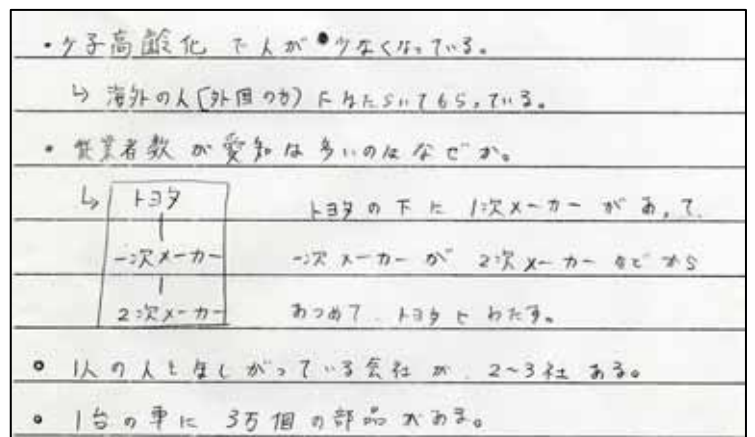 ・少子高齢化で人が少なくなっている。
↳ 海外の人(外国の方)にはたらいてもらっている。
・従業者数が愛知は多いのはなぜか。
↳ トヨタ
一次メーカー
2次メーカー
トヨタの下に1次メーカーがあって、
一次メーカーが2次メーカーなどから
あつめて、トヨタにわたす。
・1人の人をほしがっている会社が、2~3社ある。
・1台の車に3万個の部品がある。